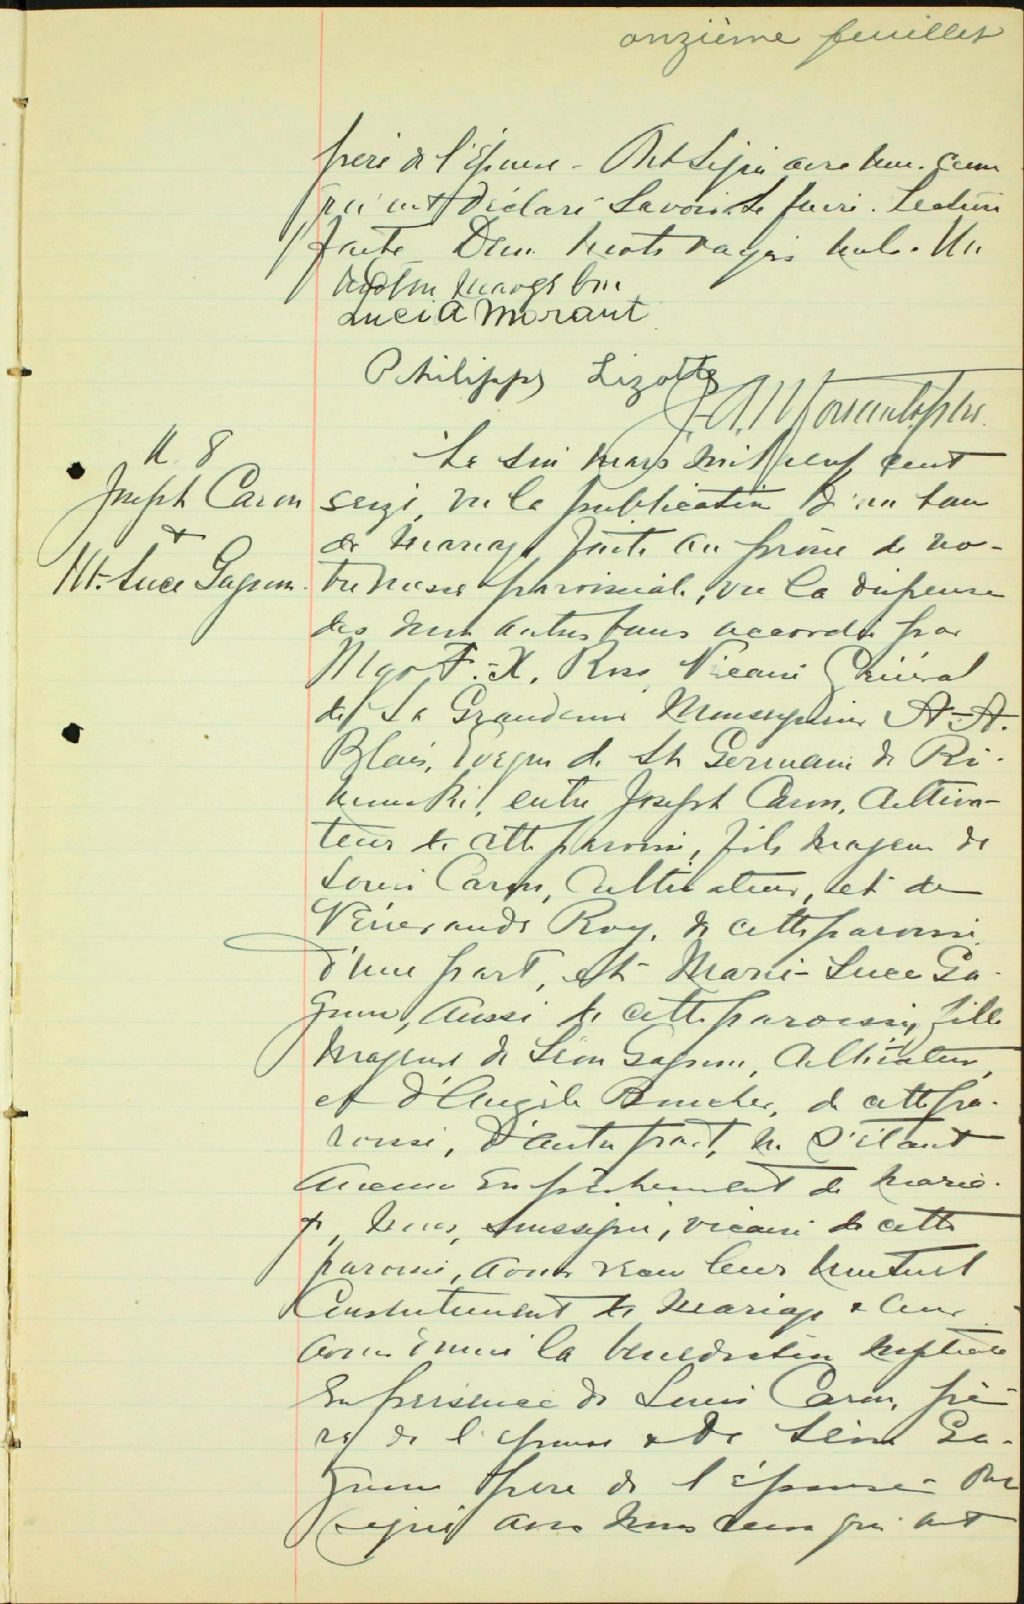 onzième feuillet
père de l'épouse - Ont signé avec nous ceux
qui ont déclaré savoir le faire. Lecture
faite. Deux mots rayés nuls. Un
marge bon
Lucia Morant
Philippe Lizotte
M. 8
Joseph Caron
&
M.-Luce Gagnon.
Le six mars mil neuf cent
seize, vu la publication d'un ban
de mariage faite au prône de no-
tre messe paroissiale, vu la dispense
des deux autres bans accordée par
Mgr F.-X. Ross Vicaire Général
de Sa Grandeur Monseigneur A.-A.
Blais, Evêque de St Germain de Ri-
mouski, entre Joseph Caron, cultiva-
teur de cette paroisse, fils majeur de
Louis Caron, cultivateur, et de
Vénérande Roy, de cette paroisse
d'une part, et Marie-Luce Ga-
gnon, aussi de cette paroisse, fille
majeure de Léon Gagnon, cultivateur,
et d'Angèle Boucher, de cette pa-
roisse, d'autre part, ne s'étant
aucun empêchement de maria-
ge, nous, soussigné, vicaire de cette
paroisse, avons reçu leur mutuel
consentement de mariage & leur
avons donné la bénédiction nuptiale
en présence de Louis Caron, pè-
re de l'époux & de Léon Ga-
gnon père de l'épouse - Ont
signé avec nous ceux qui ont